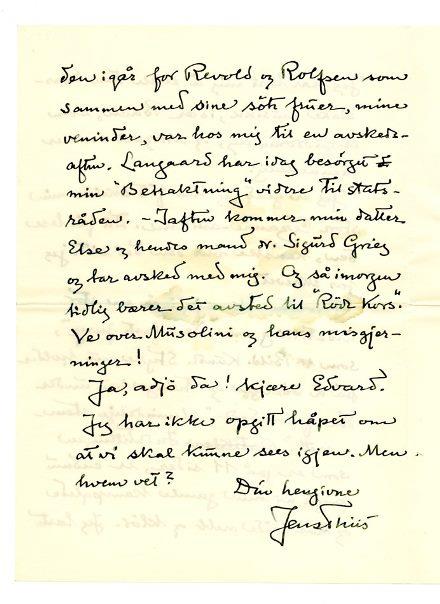 den igår for Revold og Rolfsen som
sammen med sine söte fruer, mine
veninder, var hos mig til en avskeds-
aften. Langaard har idag besörget
min "Betraktning" videre til stats-
råden. – Iaften kommer min datter
Else og hendes mand dr. Sigurd Grieg
og tar avsked med mig. Og så imorgen
tidlig bærer det avsted til "Röde Kors".
Ve over Musolini og hans misgjer-
ninger!
Ja, adjö da! kjære Edvard.
Jeg har ikke opgitt håpet om
at vi skal kunne sees igjen. Men
hvem vet?
Din hengivne
Jens Thiis